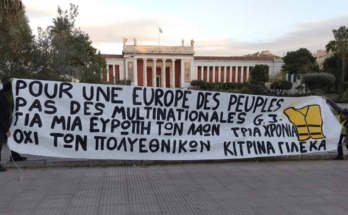 POUR UNE EUROPE DES PEUPLES
PAS DES MULTINATIONALES G.J.
ΓΙΑ ΜΙΑ ΕΥΡΩΠΗ ΤΩΝ ΛΑΩΝ ΤΡΙΑ ΧΡΟΝΙΑ
ΟΧΙ ΤΩΝ ΠΟΛΥΕΘΝΙΚΩΝ ΚΙΤΡΙΝΑ ΓΙΛΕΚΑ